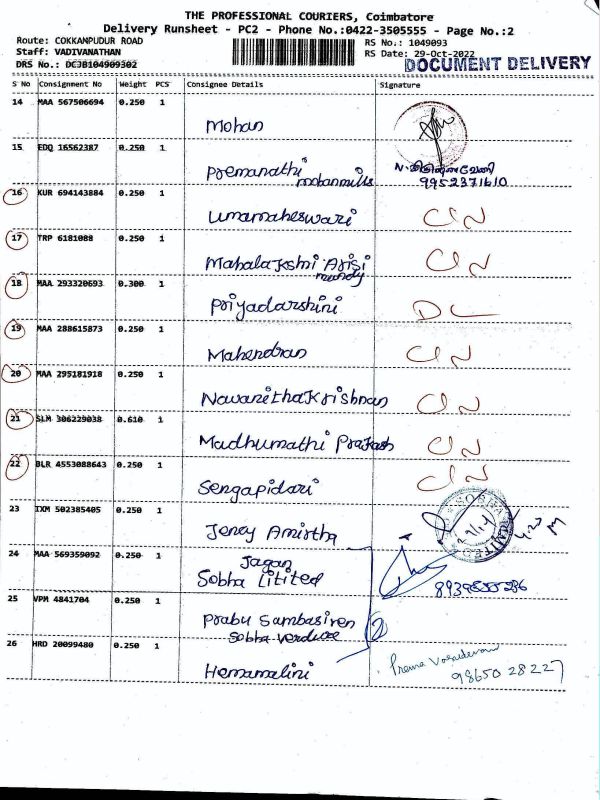 THE PROFESSIONAL COURIERS, Coimbatore
Delivery Runsheet - PC2 - Phone No.:0422-3505555 - Page No.:2
Route: COKKANPUDUR ROAD
RS No.: 1049093
Staff: VADIVANATHAN
RS Date: 29-Oct-2022
DRS No.: DCJB104909302
DOCUMENT DELIVERY
S No Consignment No Weight PCS Consignee Details Signature
14 MAA 567506694 0.250 1
Mohan
15 EDQ 16562387 0.250 1
Premanathi
mohanmills
9952371610
16 KUR 694143884 0.250 1
Umamaheswari C/N
17 TRP 6181088 0.250 1
Mahalakshmi Arisi C/N
mundy
18 MAA 293320693 0.300 1
Priyadarshini DL
19 MAA 288615873 0.250 1
Mahendran C/N
20 MAA 295181918 0.250 1
Navanitha Krishnan C/N
21 SLM 306229038 0.610 1
Madhumathi Prakash C/N
22 BLR 4553088643 0.250 1
Sengapidari C/N
23 IXM 502385405 0.250 1
Jency Amirtha
24 MAA 569359092 0.250 1
Jagan
Sobha Litited
25 VPM 4841704 0.250 1
Prabu Sambasiven
Sobha verdure
26 HRD 20099480 0.250 1
Hemamalini
98650 28227